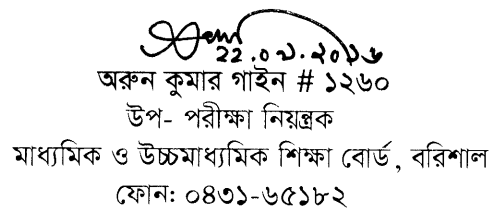 অরুন কুমার গাইন # ১২৬০
উপ- পরীক্ষা নিয়ন্ত্রক
মাধ্যমিক ও উচ্চমাধ্যমিক শিক্ষা বোর্ড, বরিশাল
ফোন: ০৪৩১-৬৫১৮২